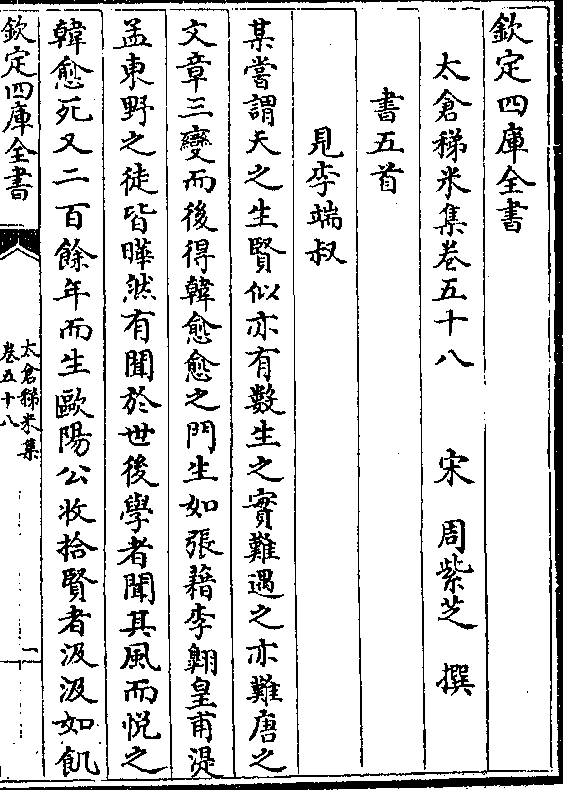 欽定四庫全書
太倉稊米集卷五十八　宋　周紫芝　撰
書五首
見李端叔
某嘗謂天之生賢似亦有數生之實難遇之亦難唐之
文章三變而後得韓愈愈之門生如張藉李翺皇甫湜
孟東野之徒皆曄然有聞於世後學者聞其風而悅之
韓愈死又二百餘年而生歐陽公收拾賢者汲汲如飢
欽定四庫全書
太倉稊米集
卷五十八
一